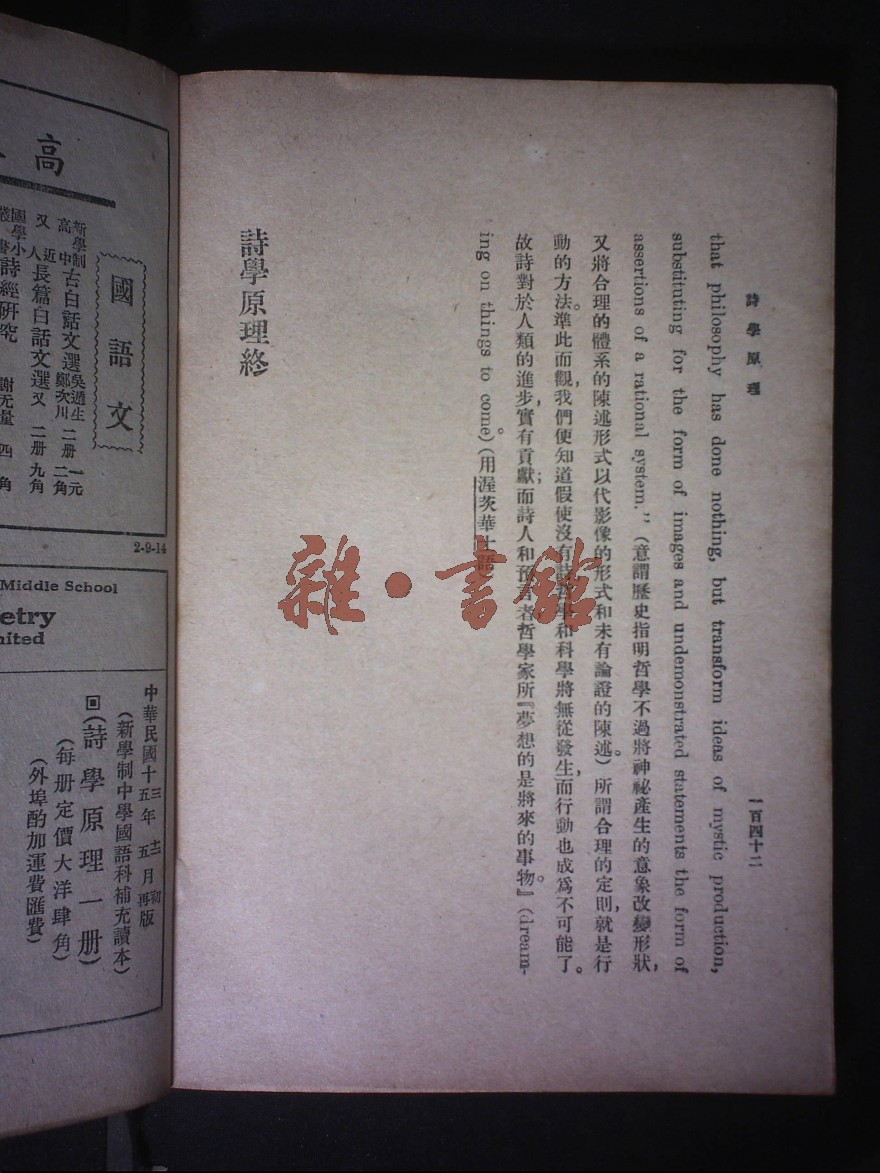 詩學原理
一百四十二
that philosophy has done nothing, but transform ideas of mystic production,
substituting for the form of images and undemonstrated statements the form of
assertions of a rational system.”（意謂歷史指明哲學不過將神祕產生的意象改變形狀，
又將合理的體系的陳述形式以代影像的形式和未有論證的陳述。）所謂合理的定則，就是行
動的方法。準此而觀，我們便知道假使沒有詩，哲學和科學將無從發生，而行動也成爲不可能了。
故詩對於人類的進步，實有貢獻；而詩人和預言者哲學家所『夢想的是將來的事物。』（dream-
ing on things to come）（用渥茨華士語。）
詩學原理終
雜·書館
高
國語文
新學制高中古白話文選 吳遁生 鄭次川 二册 一元二角
又 近人長篇白話文選 又 二册 九角
國學小叢書 詩經研究 謝无量 四角
2-9-14
Middle School
etry
nited
中華民國十三年十二月初版
十五年五月再版
（新學制中學國語科補充讀本）
回（詩學原理一册）
（每册定價大洋肆角）
（外埠酌加運費匯費）